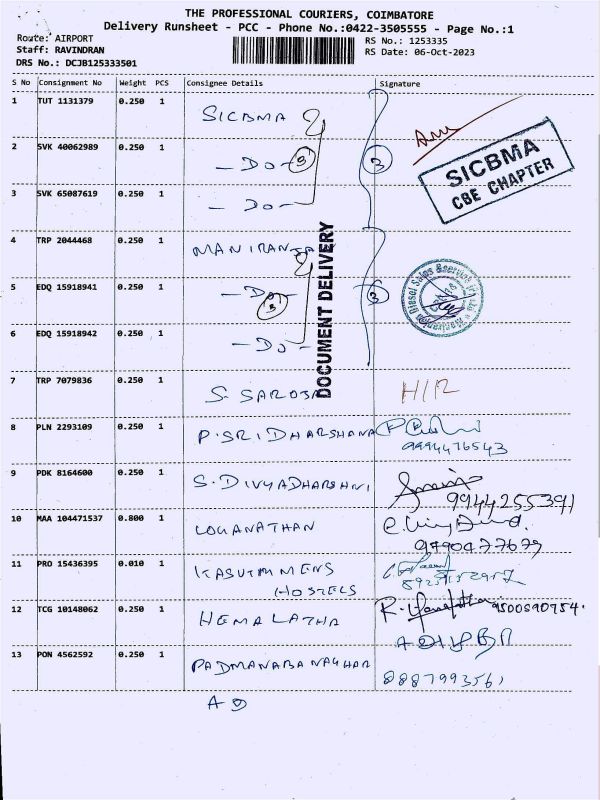 THE PROFESSIONAL COURIERS, COIMBATORE
Delivery Runsheet - PCC - Phone No.:0422-3505555 - Page No.:1
Route: AIRPORT RS No.: 1253335
Staff: RAVINDRAN RS Date: 06-Oct-2023
DRS No.: DCJB125333501
S No Consignment No Weight PCS Consignee Details Signature
1 TUT 1131379 0.250 1 SICBMA
2 SVK 40062989 0.250 1 - DO - 3 3
SICBMA
CBE CHAPTER
3 SVK 65087619 0.250 1 - DO -
4 TRP 2044468 0.250 1 MANIRANJA
DOCUMENT DELIVERY
5 EDQ 15918941 0.250 1 - DO - 3 3
Diesel Sales &
6 EDQ 15918942 0.250 1 - DO -
7 TRP 7079836 0.250 1 S. SAROJA H/R
8 PLN 2293109 0.250 1 P. SRIDHARSHANA
9994476543
9 PDK 8164600 0.250 1 S. DIVYADHARSHNI
9944255391
10 MAA 104471537 0.800 1 LOGANATHAN
9790477679
11 PRO 15436395 0.010 1 KASUTHMENS
HOSTELS
12 TCG 10148062 0.250 1 HEMALATHA 9500590754.
13 PON 4562592 0.250 1 PADMANABANAGHAR
8887993561